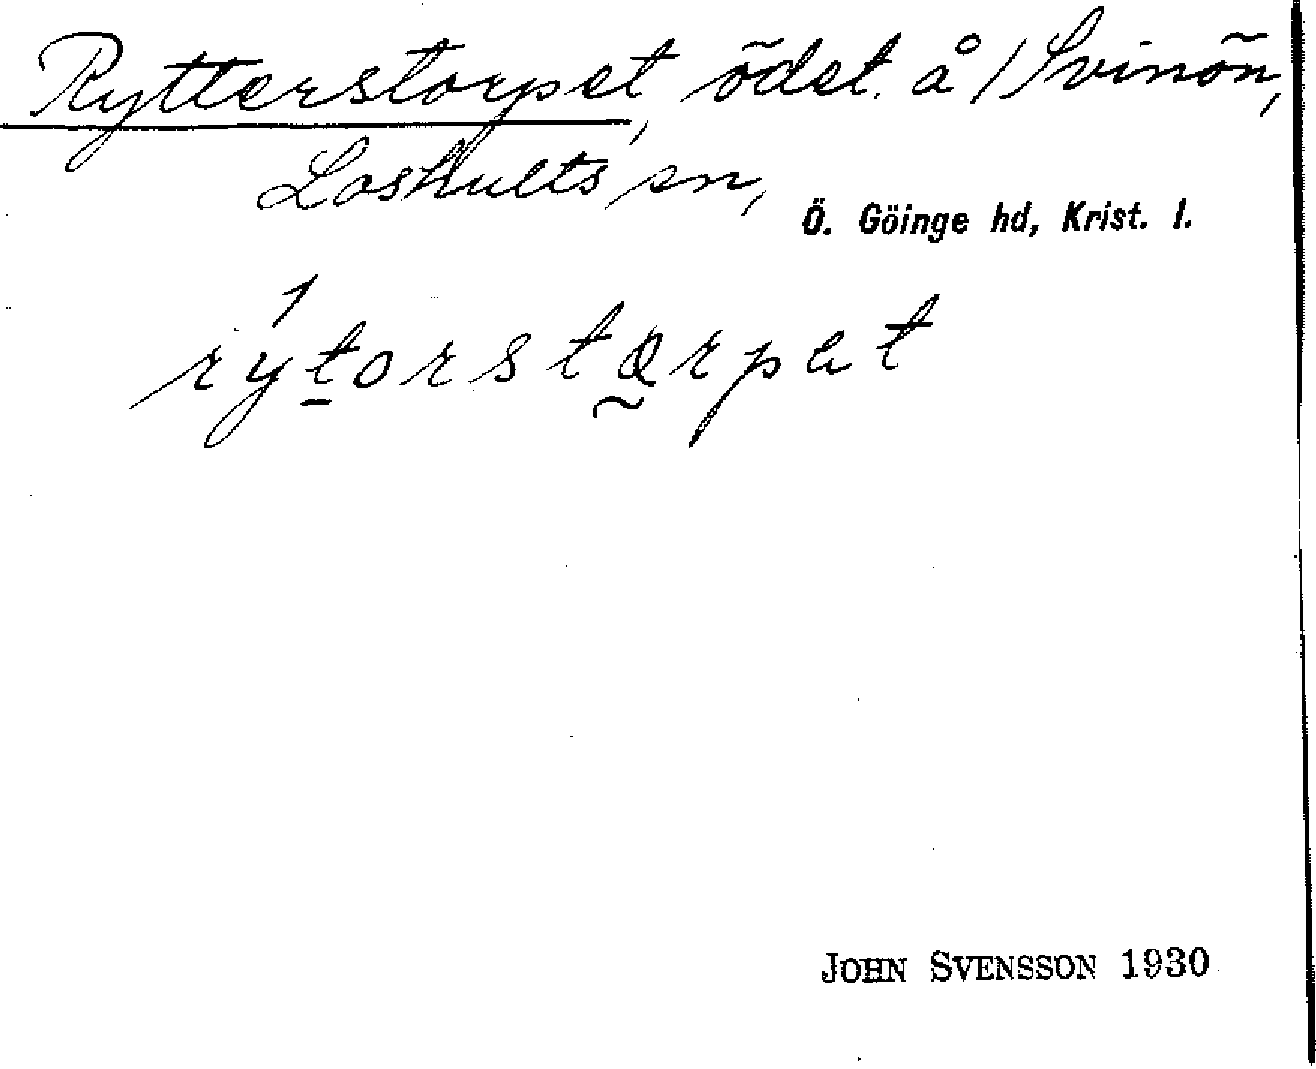 Rytterstorpet, ödet. å /Svinön,
Loshults sn, Ö. Göinge hd, Krist. l.
rýtorstærpet
JOHN SVENSSON 1930